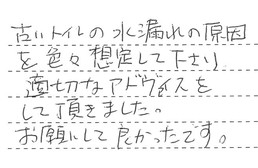 古いトイレの水漏れの原因
を色々想定して下さり
適切なアドヴァイスを
して頂きました。
お願いして良かったです。